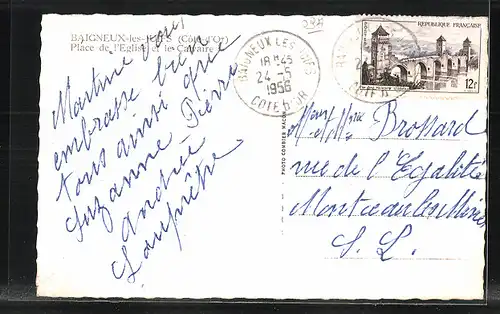 BAIGNEUX-les-JUIFS (Côte-d'Or)
Place de l'Eglise et le Calvaire
Martine vous
embrasse bien
tous ainsi que
Suzanne Pierre
Andrée
BAIGNEUX LES JUIFS
18 H 45
24 -5
1956
COTE D'OR
REPUBLIQUE FRANÇAISE
12F
PHOTO COMBIER MACON
Brossard
rue de l'Egalité
Montceau les Mines
S. L.